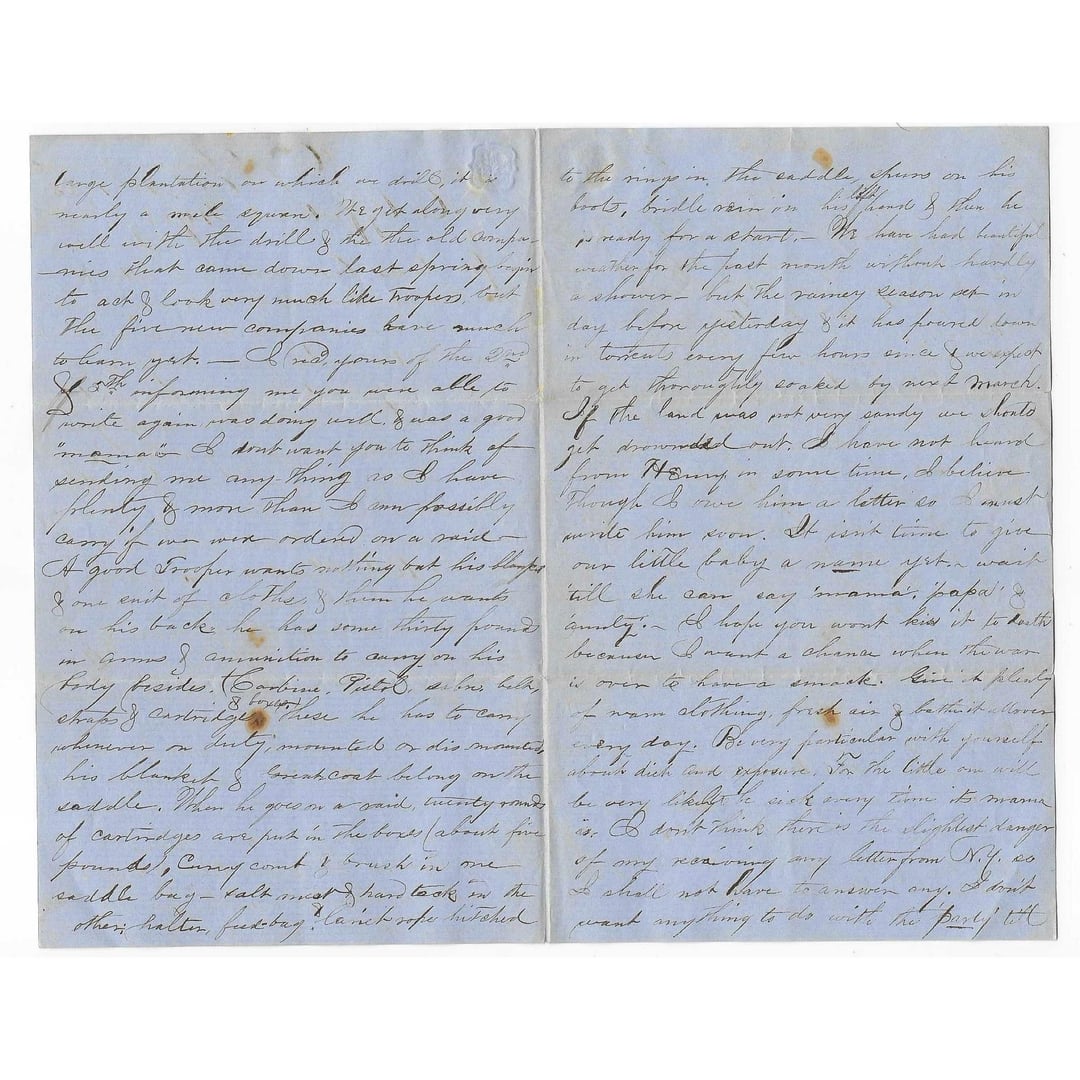 large plantation on which we drill, it is
nearly a mile square. We get along very
well with the drill & the old compa-
-nies that came down last spring begin
to act & look very much like Troopers, but
the five new companies have much
to learn yet. — I recd. yours of the 2nd
& 5th informing me you were able to
write again was doing well & was a good
"mama" I dont want you to think of
sending me any-thing as I have
plenty & more than I can possibly
carry if we were ordered on a raid —
A good Trooper wants nothing but his blanket
& one suit of cloths, & them he wants
on his back. he has some thirty pounds
in arms & amunition to carry on his
body besides. (Carbine, Pistol, sabre, belt,
straps & cartridges & boxes) These he has to carry
whenever on duty, mounted or dismounted
his blanket & Great coat belong on the
saddle. When he goes on a raid, twenty rounds
of cartridges are put in the boxes (about five
pounds), Curry comb & brush in one
saddle bag — salt meat & hard tack in the
other; halter, feed bag & lariet rope hitched
to the rings in the saddle, spurs on his
boots, bridle rein in his left hand & then he
is ready for a start. — We have had beautiful
weather for the past month without hardly
a shower — but the rainey season set in
day before yesterday & it has poured down
in torrents every few hours since & we expect
to get thoroughly soaked by next March.
If the land was not very sandy we should
get drownded out. I have not heard
from Henry in some time, I believe
though I owe him a letter so I must
write him soon. It isnt time to give
our little baby a name yet, wait
till she can say 'mama', 'papa' &
aunty. — I hope you wont kiss it to death
because I want a chance when the war
is over to have a smack. Give it plenty
of warm clothing, fresh air & bathe it all over
every day. Be very particular with yourself
about diet and exposure. For the little one will
be very likely to be sick every time its mama
is. I don't think there is the slightest danger
of my receiving any letter from N.Y. so
I shall not have to answer any. I don't
want anything to do with the 'party' till